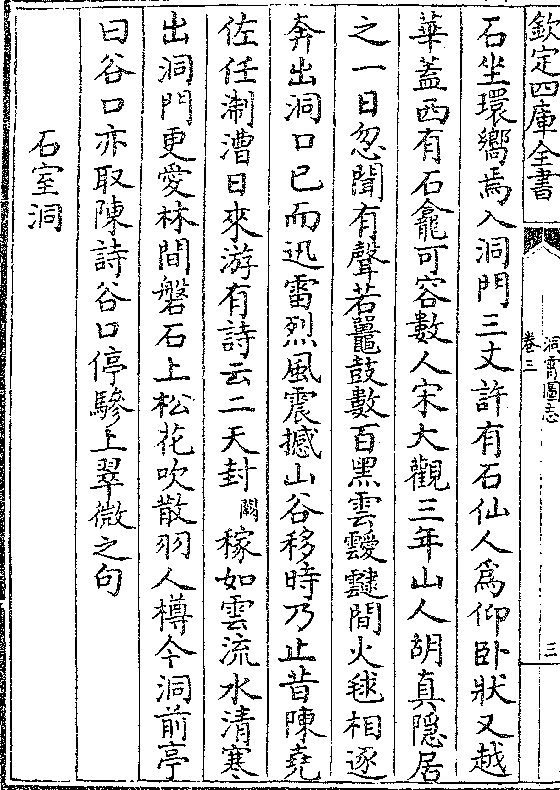 欽定四庫全書
洞霄圖志
卷三
三
石坐環嚮焉入洞門三丈許有石仙人為仰卧狀又越
華蓋西有石龕可容數人宋大觀三年山人胡真隱居
之一日忽聞有聲若鼉鼓數百黒雲靉靆間火毬相逐
奔出洞口已而迅雷烈風震撼山谷移時乃止昔陳堯
佐任淛漕日來游有詩云二天封闕稼如雲流水清寒
出洞門更愛林間磐石上松花吹散羽人樽今洞前亭
曰谷口亦取陳詩谷口停驂上翠微之句
石室洞